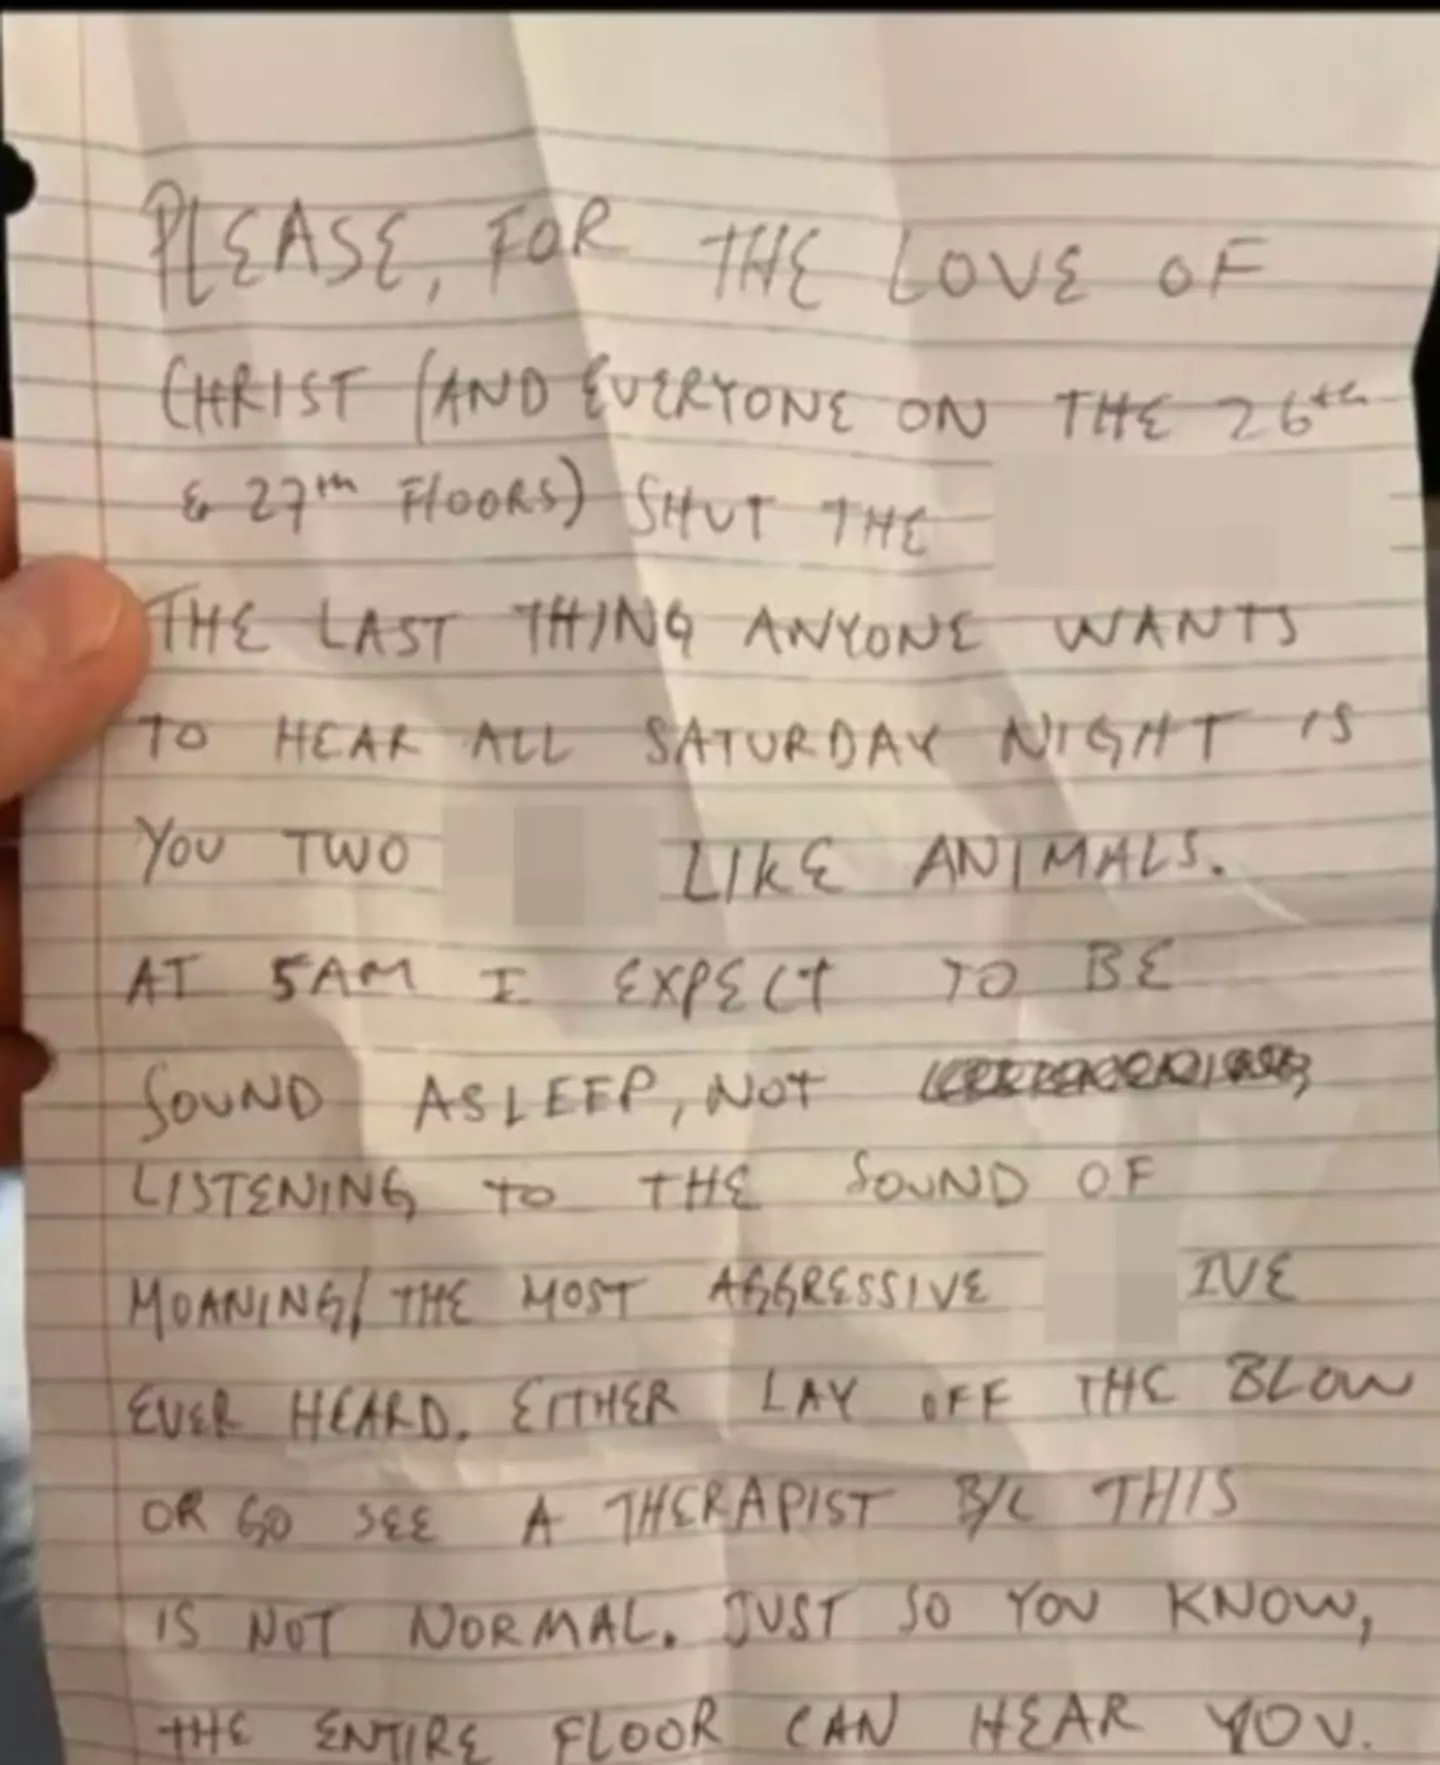 PLEASE, FOR THE LOVE OF
CHRIST (AND EVERYONE ON THE 26th
& 27th FLOORS) SHUT THE
THE LAST THING ANYONE WANTS
TO HEAR ALL SATURDAY NIGHT IS
YOU TWO LIKE ANIMALS.
AT 5AM I EXPECT TO BE
SOUND ASLEEP, NOT
LISTENING TO THE SOUND OF
MOANING/THE MOST AGGRESSIVE IVE
EVER HEARD. EITHER LAY OFF THE BLOW
OR GO SEE A THERAPIST B/C THIS
IS NOT NORMAL. JUST SO YOU KNOW,
THE ENTIRE FLOOR CAN HEAR YOU.